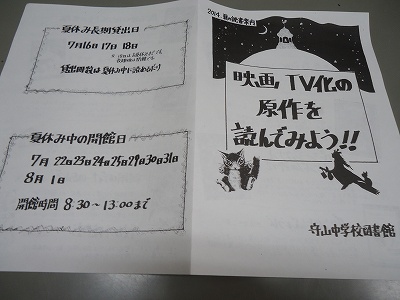 夏休み長期貸出日
7月16日17日18日
貸出冊数は夏休み中に読めるだけ
夏休み中の開館日
7月 22日23日24日25日29日30日31日
8月 1日
開館時間 8:30~13:00まで
2014 夏の読書案内
映画,TV化の
原作を
読んでみよう!!
守山中学校図書館